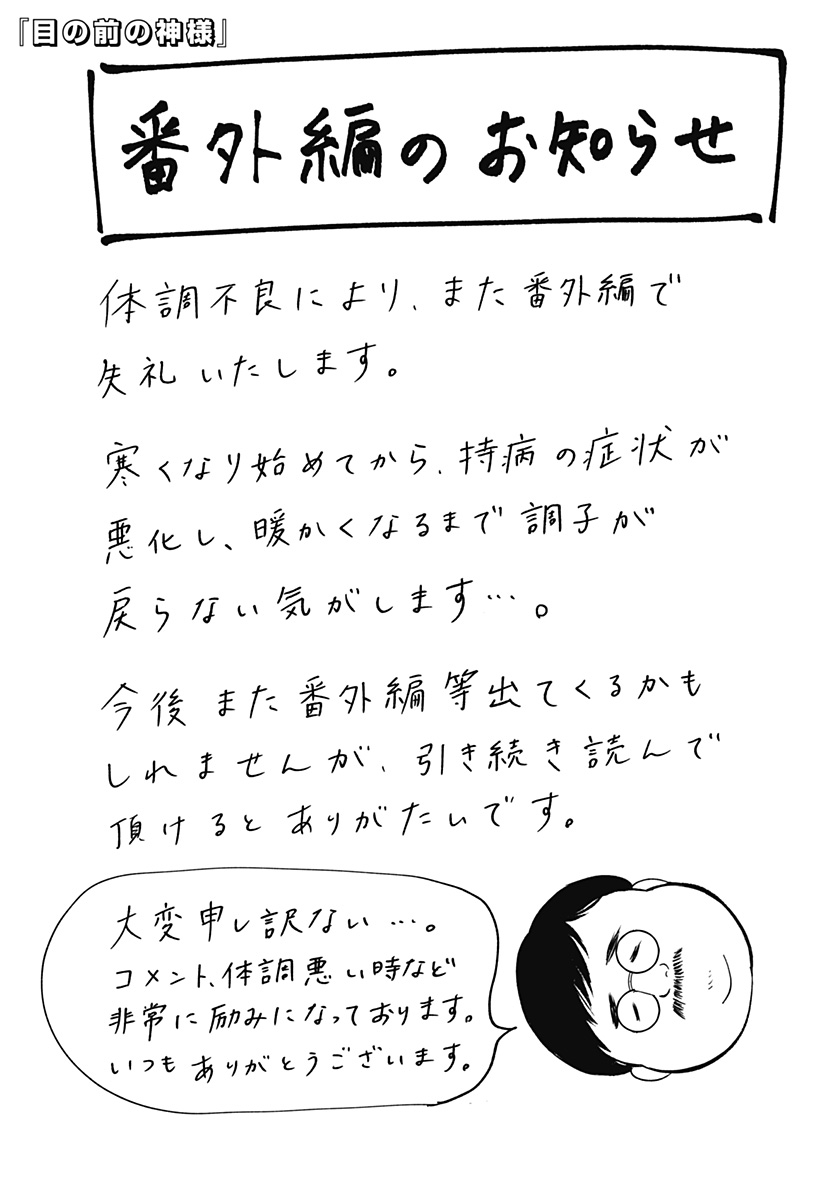 『目の前の神様』
番外編のお知らせ
体調不良により、また番外編で
失礼いたします。
寒くなり始めてから、持病の症状が
悪化し、暖かくなるまで調子が
戻らない気がします…。
今後また番外編等出てくるかも
しれませんが、引き続き読んで
頂けるとありがたいです。
大変申し訳ない…。
コメント、体調悪い時など
非常に励みになっております。
いつもありがとうございます。